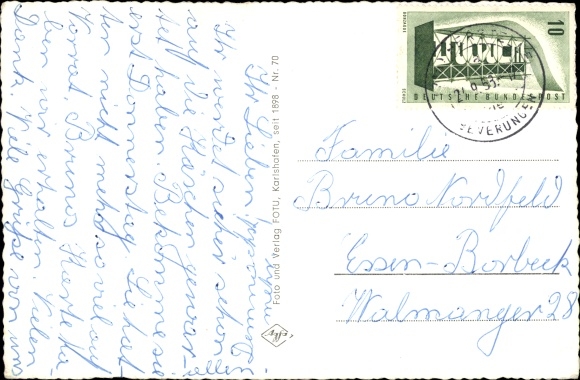 Ihr Lieben
Ihr werdet sicher schon
auf die Häschen gewar-
tet haben. Bekomme sie
erst Donnerstag. Liebel
ten nicht mehr so viel auf
Vorrat. Brunos Karte ha-
ben wir erhalten. Vielen
Dank. Viele Grüße von uns
Foto und Verlag FOTU, Karlshafen, seit 1898 - Nr. 70
10
EUROPA
DEUTSCHE BUNDESPOST
BEVERUNGEN
Familie
Bruno Nordfeld
Essen-Borbeck
Walmanger 28